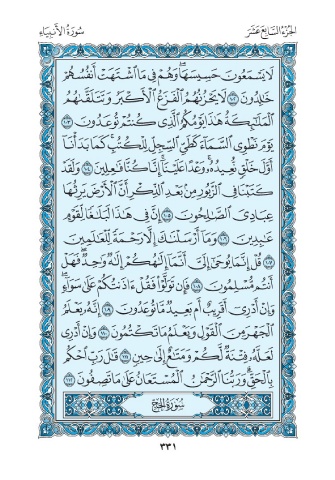 الجزء السابع عشر
سورة الأنبياء
لَا يَسْمَعُونَ حَسِيسَهَا ۖ وَهُمْ فِي مَا اشْتَهَتْ أَنفُسُهُمْ
خَالِدُونَ ١٠٢ لَا يَحْزُنُهُمُ الْفَزَعُ الْأَكْبَرُ وَتَتَلَقَّاهُمُ
الْمَلَائِكَةُ هَٰذَا يَوْمُكُمُ الَّذِي كُنتُمْ تُوعَدُونَ ١٠٣
يَوْمَ نَطْوِي السَّمَاءَ كَطَيِّ السِّجِلِّ لِلْكُتُبِ ۚ كَمَا بَدَأْنَا
أَوَّلَ خَلْقٍ نُّعِيدُهُ ۚ وَعْدًا عَلَيْنَا ۚ إِنَّا كُنَّا فَاعِلِينَ ١٠٤ وَلَقَدْ
كَتَبْنَا فِي الزَّبُورِ مِن بَعْدِ الذِّكْرِ أَنَّ الْأَرْضَ يَرِثُهَا
عِبَادِيَ الصَّالِحُونَ ١٠٥ إِنَّ فِي هَٰذَا لَبَلَاغًا لِّقَوْمٍ
عَابِدِينَ ١٠٦ وَمَا أَرْسَلْنَاكَ إِلَّا رَحْمَةً لِّلْعَالَمِينَ
١٠٧ قُلْ إِنَّمَا يُوحَىٰ إِلَيَّ أَنَّمَا إِلَٰهُكُمْ إِلَٰهٌ وَاحِدٌ ۖ فَهَلْ
أَنتُم مُّسْلِمُونَ ١٠٨ فَإِن تَوَلَّوْا فَقُلْ آذَنتُكُمْ عَلَىٰ سَوَاءٍ ۖ
وَإِنْ أَدْرِي أَقَرِيبٌ أَم بَعِيدٌ مَّا تُوعَدُونَ ١٠٩ إِنَّهُ يَعْلَمُ
الْجَهْرَ مِنَ الْقَوْلِ وَيَعْلَمُ مَا تَكْتُمُونَ ١١٠ وَإِنْ أَدْرِي
لَعَلَّهُ فِتْنَةٌ لَّكُمْ وَمَتَاعٌ إِلَىٰ حِينٍ ١١١ قَالَ رَبِّ احْكُم
بِالْحَقِّ ۗ وَرَبُّنَا الرَّحْمَٰنُ الْمُسْتَعَانُ عَلَىٰ مَا تَصِفُونَ ١١٢
سورة الحج
٣٣١